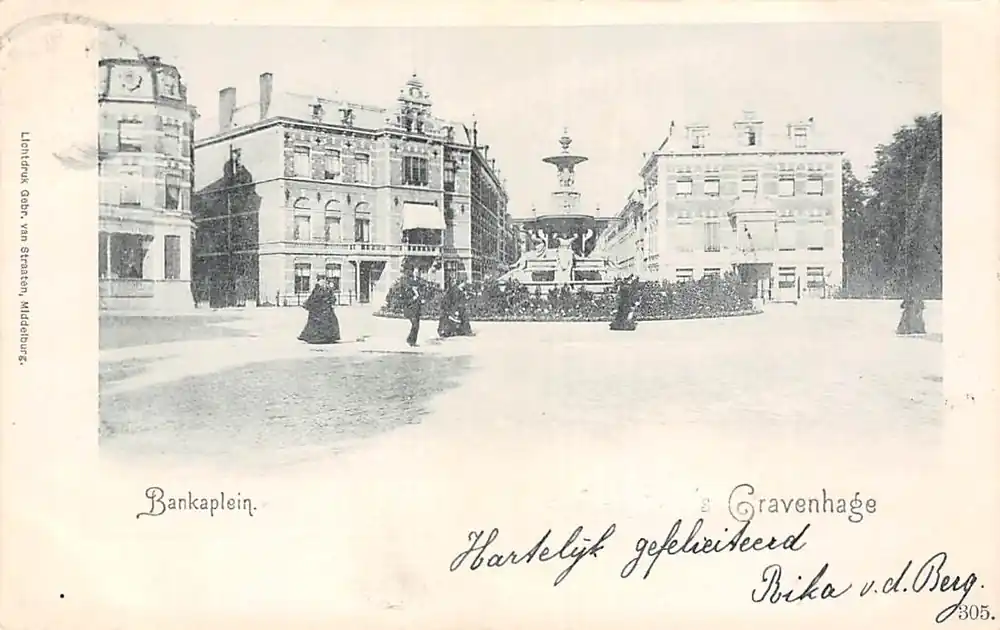 Lichtdruk Gebr. van Straaten, Middelburg.
Bankaplein.
s Gravenhage
Hartelijk gefeliciteerd
Rika v.d. Berg.
305.